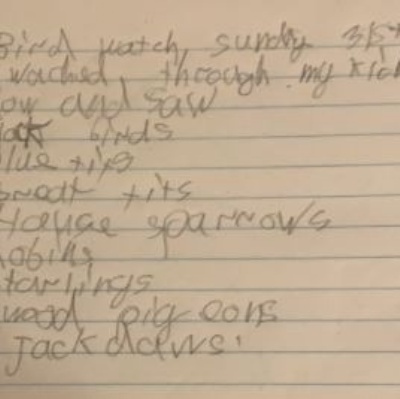 Bird watch, sundy 31st
wached, through my
ow and saw
lack birds
lue tits
Great tits
House sparrows
obins
tarlings
wood pigeons
Jackdaws.